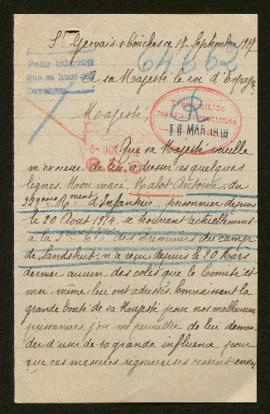 St Gervais Bouches le 17 Septembre 1917
64662
Pedir
Que se haga
A sa Majesté le roi d'Espagne
Majesté
10 MAR 1918
Que sa Majesté veuille
m'excuser de lui adresser quelques
lignes Mon mari, Rabot Antoine, du
régiment d'Infanterie prisonnier depuis
le 20 Août 1914 se trouvant actuellement
à la des prisonniers du camp
de Landshut n'a reçu depuis le 20 Mars
dernier aucun des colis que le Comité et
moi même lui ont adressés. Connaissant la
grande bonté de sa Majesté pour nos malheureux
prisonniers, j'ose me permettre de lui deman-
der d'user de sa grande influence pour
que ces mesures rigoureuses cessent